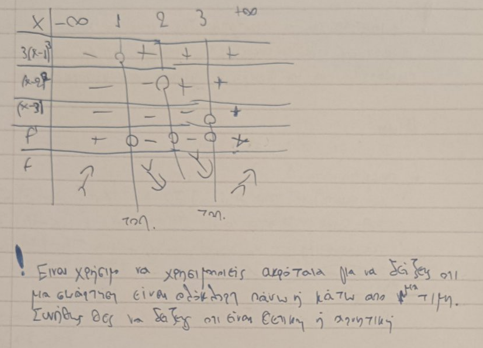 x -∞ 1 2 3 +∞
3(x-1)³ - + + +
(x-2)² - - + +
(x-3) - - - +
f' + - - +
f ↗ ↘ ↘ ↗
τοπ. τοπ.
! Ειναι χρήσιμο να χρησιμοποιείς ακρότατα για να δείξεις οτι
μια συνάρτηση είναι ολόκληρη πάνω ή κάτω απο μια τιμη.
Συνήθως θες να δείξεις οτι είναι θετικη ή αρνητική